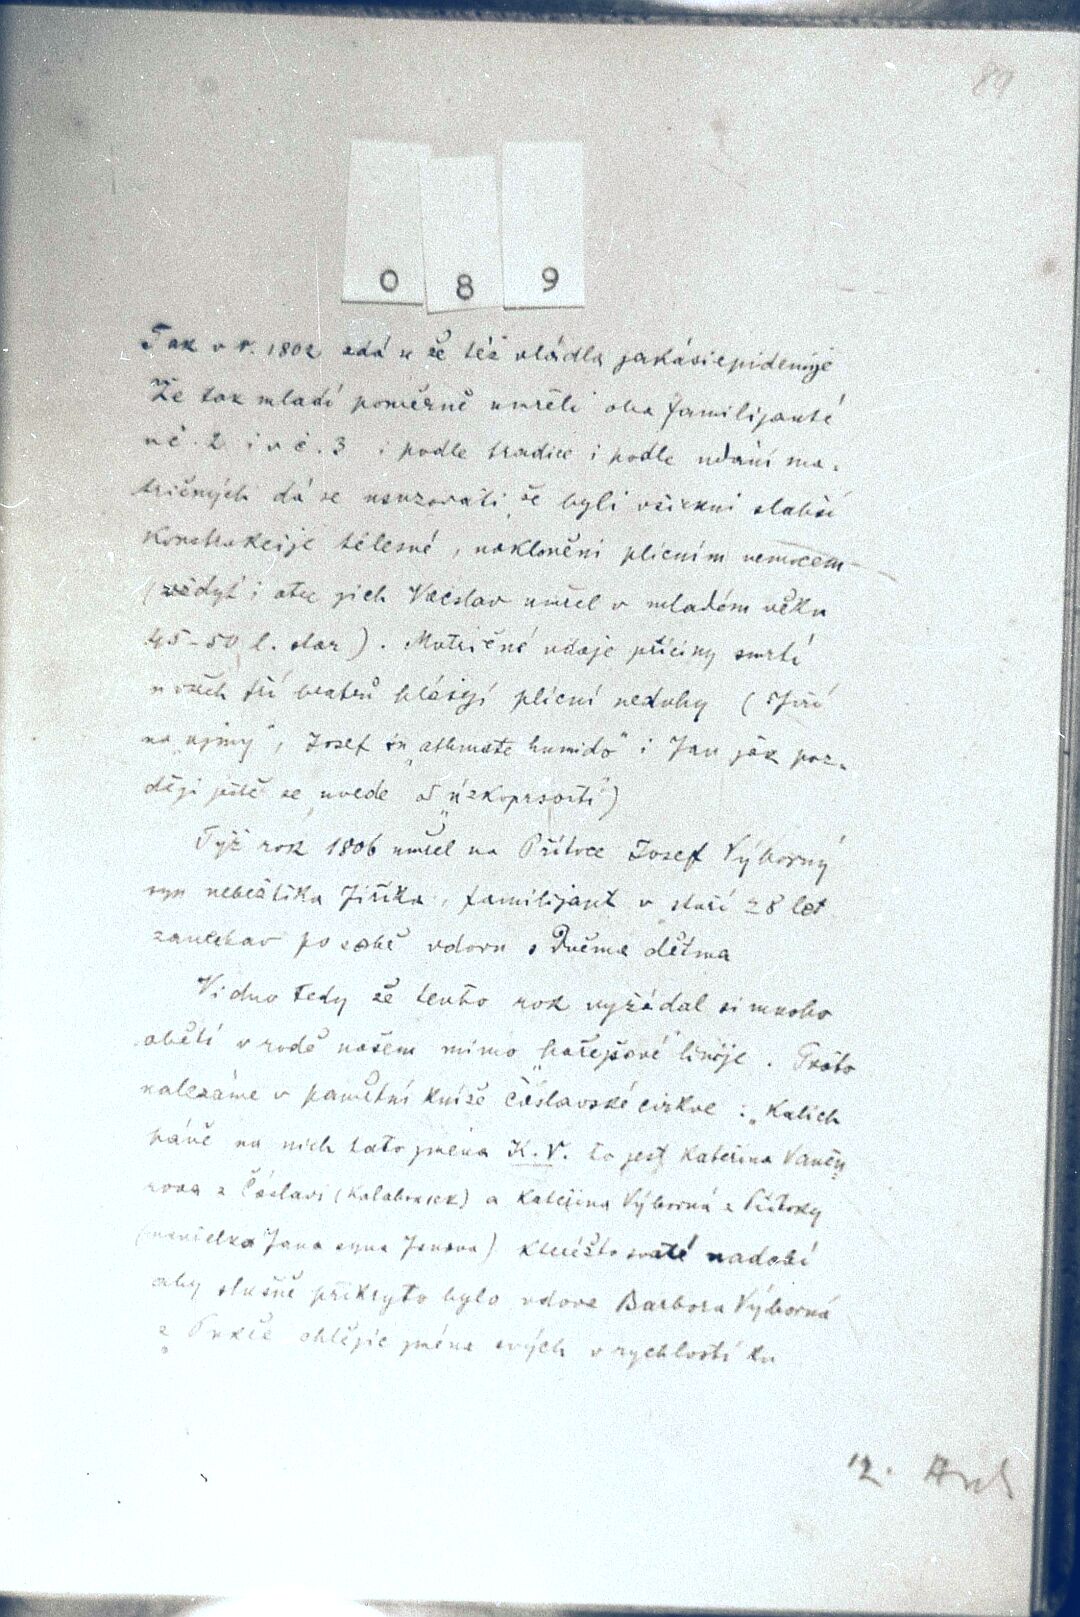 89
0 8 9
Tak v r. 1802 zdá se že též vládla jakási epidemije
Že tak mladí poměrně umřeli oba familijanté
nč. 2 i v č. 3 i podle tradice i podle udání ma-
tričných dá se usuzovati, že byli všickni slabší
Konstrukcije tělesné, nakloněni plicním nemocem
(vždyť i otec jich Václav umřel v mladém věku
45-50 l. star). Matričné údaje příčiny smrti
u všech tří bratrů hlásají plicní neduhy (Jiří
na „ujmy", Josef in „asthmate humido" i Jan jak poz-
ději ještě se uvede od „úzkoprsosti")
Týž rok 1806 umřel na Přítoce Josef Výborný
syn nebožtíka Jiříka, familijant v stáří 28 let
zanechav po sobě vdovu s Dvěma dětma
Vidno tedy že tento rok vyžádal si mnoho
obětí v rodě našem mimo „hořejšové" linije. Proto
nalezáme v pamětní knize Čáslavské církve: „Kalich
páně na nich tato jména K. V. to jest Kateřina Vanču
rova z Čáslavi (Kalabousek) a Kateřina Výborná z Přítoky
(manželka Jana syna Janova) Kteréžto svaté nadobí
aby slušně přikryto bylo vdova Barbora Výborná
z Pukče chtějíc jména svých v rychlosti ku
12. Arch